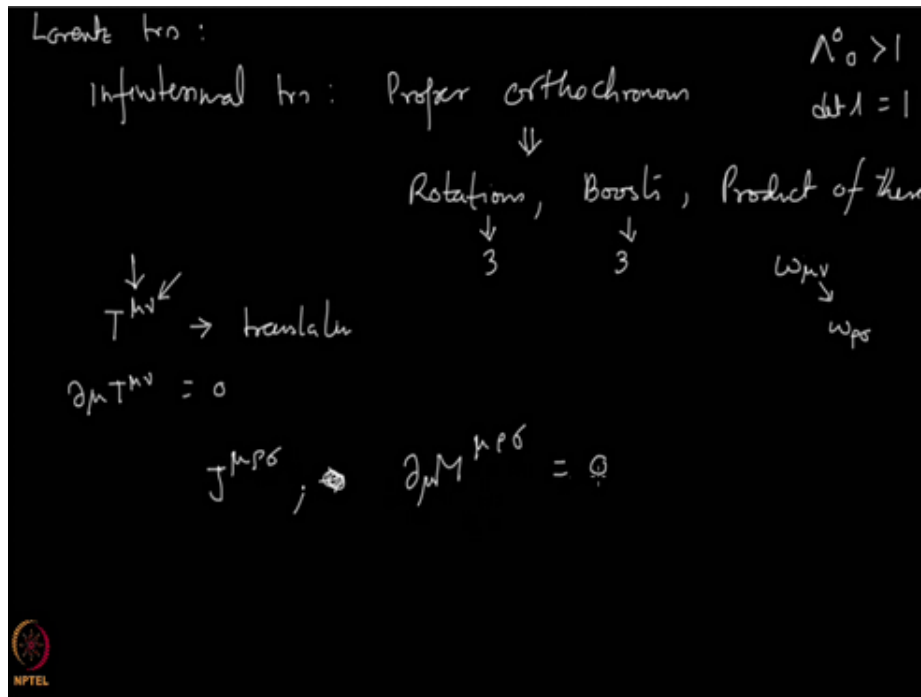 Lorentz trn :
Infinitesimal trn : Proper orthochronous
Λ⁰₀ > 1
det Λ = 1
⇓
Rotations, Boosts, Product of them
↓ ↓
3 3
ω_μν
↘
ω_ρσ
↓ ↙
T^μν → translatn
∂_μ T^μν = 0
J^μρσ ; ∂_μ M^μρσ = 0
NPTEL